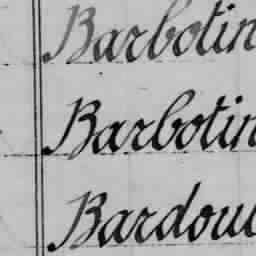 Barbotin
Barbotin
Bardou